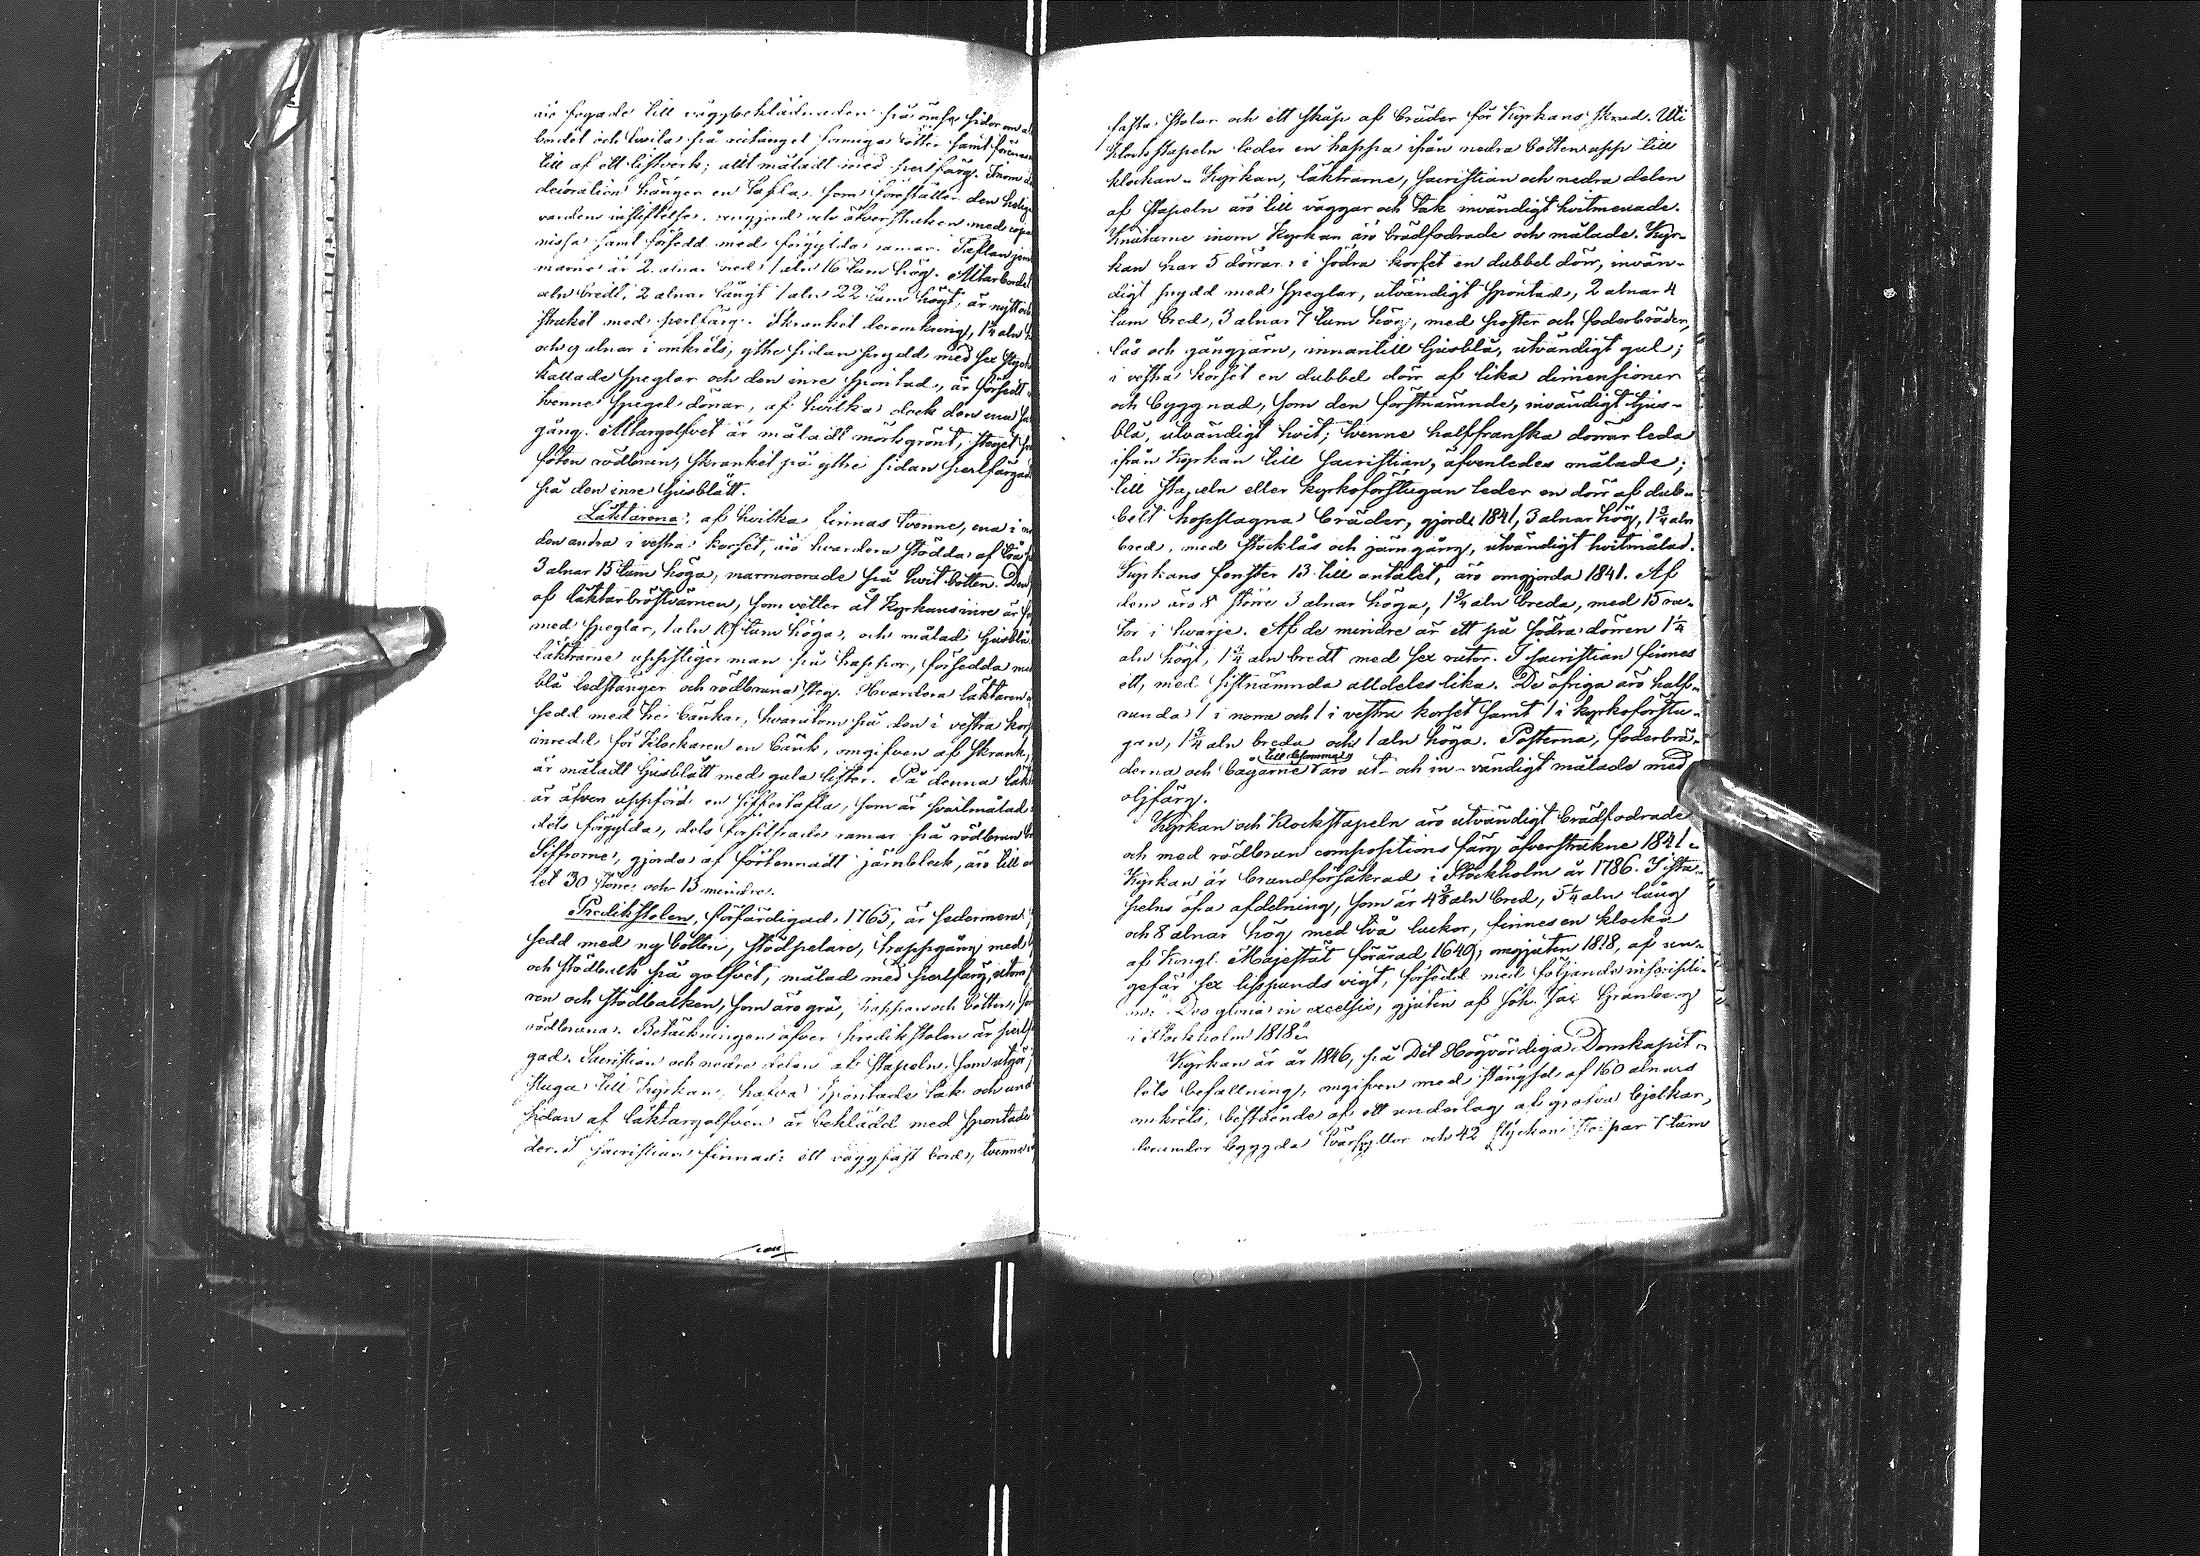 äro fogade till väggbeklädnaden på ömse sidor om al
bordet och hvila på rectangel formiga fötter samt förenas
till af ett listverk; allt måladt med perlfärg. Inom
decoration hänger en tafla, som föreställer den helig
vardens instiftelse, rengjord och öfverstruken med
nissa samt försedd med förgyllda ramar. Taflan
marne är 2 alnar bred, 1 aln 16 tum hög. Altarbordet
aln bredt, 2 alnar långt 1 aln 22 tum högt, är nytt och
struket med perlfärg. Skranket deromkring, 1¼ aln
och 9 alnar i omkrets, yttre sidan prydd med sex stycken
kallade speglar och den inre spontad, är försedt
tvenne spegel dörrar, af hvilka dock den ena
gång. Altargolfvet är måladt mörkgrönt, steget
foten rödbrun, skranket på yttre sidan perlfärgad
på den inre ljusblått.
Läktarena, af hvilka finnas tvenne, ena i
den andra i vestra korset, äro hvardera stödda af två
3 alnar 15 tum höga, marmorerade på hvit botten. Den
af läktarbröstvärnen, som vetter åt kyrkans inre är
med speglar, 1 aln 10 tum höga, och målad ljusblå
läktarne uppstiger man på trappor, försedda med
blå ledstänger och rödbruna steg. Hvardera läktaren
sedd med tre bänkar, hvarutom på den i vestra kor
inredd för Klockaren en bänk, omgifven af skrank,
är måladt ljusblått med gula lister. På denna läk
är äfven uppförd en siffertafla, som är svartmålad
dels förgyllda, dels försilfrade ramar på rödbrun
Siffrorne, gjorda af förtennadt järnbleck, äro till
let 30 större och 13 mindre.
Predikstolen, förfärdigad 1765, är sedermera
sedd med ny botten, stödpelare, trappgång med
och stödbalk på golfvet, målad med perlfärg, utom
ren och stödbalken, som äro grå, trappan och botten,
rödbruna. Betäckningen öfver predikstolen är perlf
gad. Sacristian och nedre delen af stapeln, som utgör
stuga till Kyrkan, hafva spontade tak och und
sidan af läktargolfven är beklädd med spontade
der. I sacristian finnas: ett väggfast bord, tvenne
fasta stolar och ett skåp af bräder för Kyrkans skrud. Uti
Klockstapeln leder en trappa ifrån nedra botten upp till
klockan. Kyrkan, läktrarne, sacristian och nedra delen
af stapeln äro till väggar och tak invändigt hvitmenade.
Knutarne inom kyrkan äro brädfodrade och målade. Kyr-
kan har 5 dörrar: i södra korset en dubbel dörr, invän-
digt prydd med speglar, utvändigt spontad, 2 alnar 4
tum bred, 3 alnar 7 tum hög, med poster och foderbräden,
lås och gångjärn, innantill ljusblå, utvändigt gul;
i vestra korset en dubbel dörr af lika dimensioner
och byggnad, som den förstnämnde, invändigt ljus-
blå, utvändigt hvit; tvenne halffranska dörrar leda
ifrån Kyrkan till Sacristian, äfvenledes målade;
till stapeln eller kyrkoförstugan leder en dörr af dub-
belt hopslagna bräder, gjord 1841, 3 alnar hög, 1¾ aln
bred, med stocklås och järngång, utvändigt hvitmålad.
Kyrkans fönster 13 till antalet, äro omgjorda 1841. Af
dem äro 8 större 3 alnar höga, 1¾ aln breda, med 15 ru-
tor i hvarje. Af de mindre är ett på södra dörren 1¼
aln högt, 1¾ aln bredt med sex rutor. I sacristian finnes
ett, med sistnämnda alldeles lika. De öfriga äro half-
runda 1 i norra och 1 i vestra korset samt 1 i kyrkoförstu-
gan, 1¾ aln breda och 1 aln höga. Posterna, foderbrä-
derna och bagarne till desamma äro ut- och in-vändigt målade med
oljfärg.
Kyrkan och Klockstapeln äro utvändigt brädfodrade
och med rödbrun compositions färg öfverstrukne 1841.
Kyrkan är brandförsäkrad i Stockholm år 1786. I sta-
pelns öfra afdelning, som är 4⅜ aln bred, 5¼ aln lång
och 8 alnar hög med två luckor, finnes en klocka
af Kongl. Majestät förärad 1649, omgjuten 1818, af un-
gefär sex lispunds vigt, försedd med följande inscripti-
on: Deo gloria in excelsis, gjuten af Joh. Jac Granberg
i Stockholm 1818.
Kyrkan är år 1846, på Det Högvördiga Domkapit-
lets befallning, omgifven med stängsel af 160 alnars
omkrets, bestående af ett underlag af grofva bjelkar,
derunder byggda tvärsyllor och 42 stycken par 7 tum